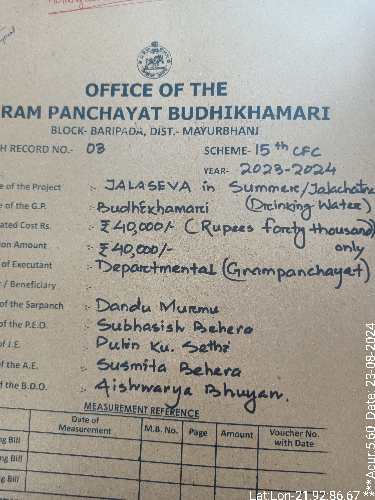 OFFICE OF THE
RAM PANCHAYAT BUDHIKHAMARI
BLOCK- BARIPADA, DIST.- MAYURBHANJ
H RECORD NO.- 03 SCHEME- 15th CFC
YEAR- 2023-2024
e of the Project :- JALASEVA in Summer/Jalachatra
e of the G.P. :- Budhikhamari (Drinking Water)
ated Cost Rs. :- ₹40,000/- (Rupees forty thousand)
ion Amount :- ₹40,000/- only
of Executant :- Departmental (Grampanchayat)
/ Beneficiary :-
of the Sarpanch :- Dandu Murmu
of the P.E.O. :- Subhasish Behera
of J.E. :- Pulin Ku. Sethi
of the A.E. :- Susmita Behera
f the B.D.O. :- Aishwarya Bhuyan.
MEASUREMENT REFERENCE
Date of Measurement M.B. No. Page Amount Voucher No. with Date
ng Bill
ng Bill
ng Bill
Lat:Lon-21.92:86.67
***Acur:5.60 Date: 23-08-2024